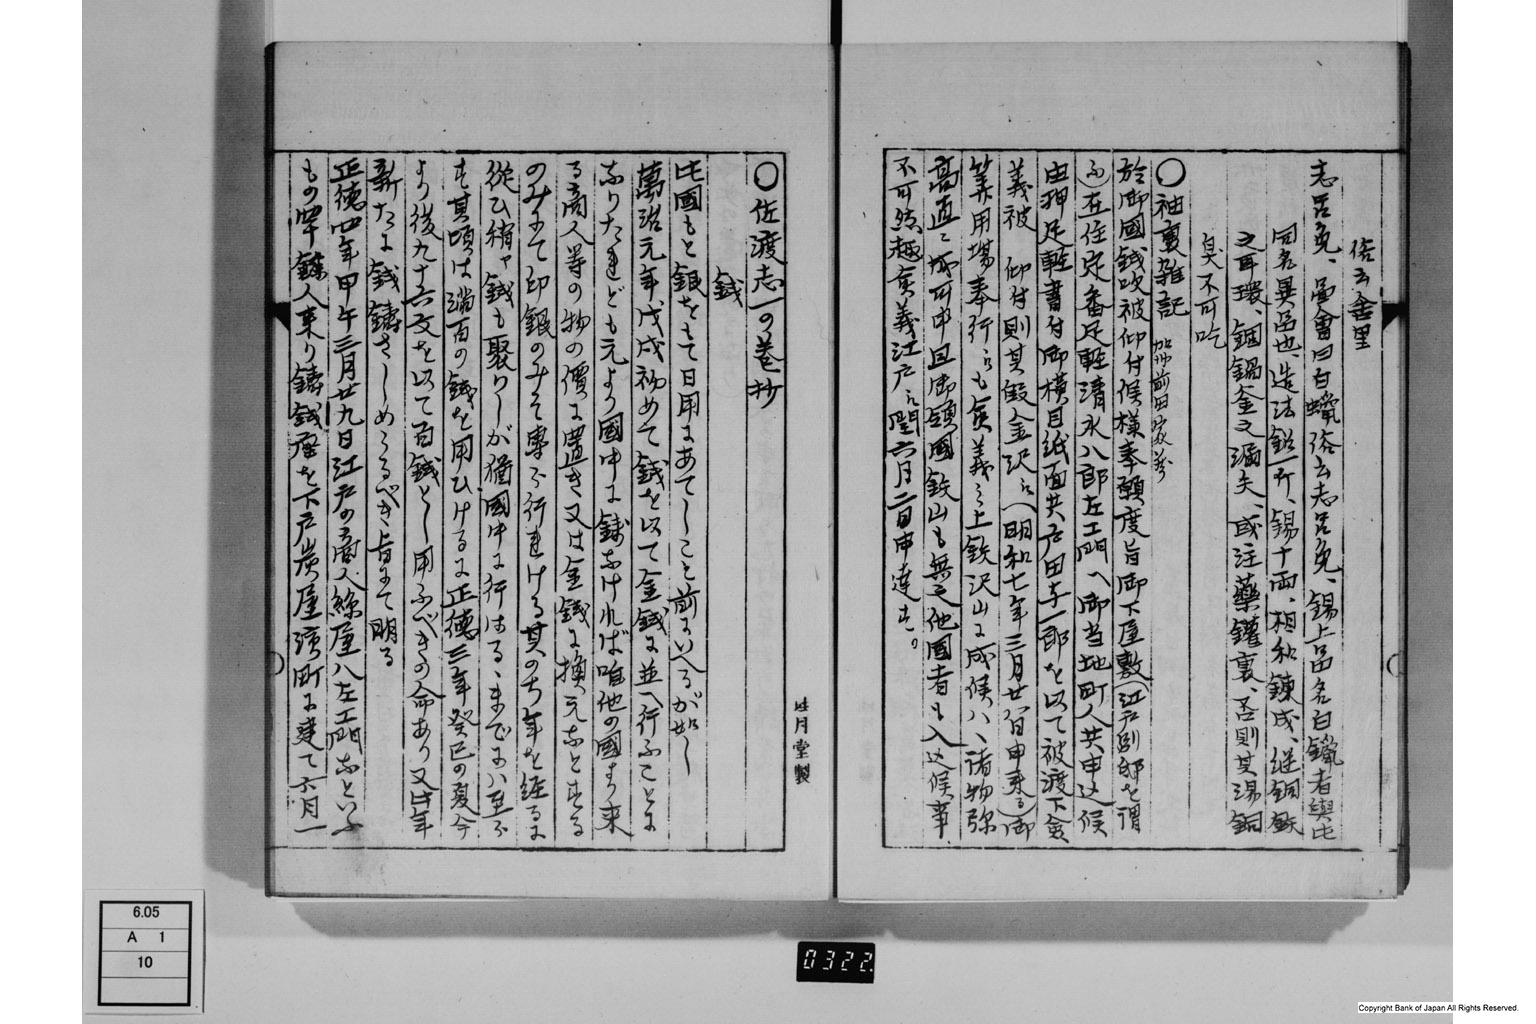 俗云舎里
志呂免、曼會曰白蠟俗云志呂免、錫上品名白鑞者與此
同名異品也、造法鉛一斤、錫十両、相和錬成、継銅鉄
之耳環、銅鍋釜之漏矣、或注薬鑵裏、否則其湯銅
臭不可吃
〇袖裏雑記 加州前田家蔵
於御國銭吹被仰付候様奉願度旨御下屋敷(江戸別邸を謂
ふ)在住定番足軽清水八郎左エ門へ御当地町人共申込候
由押足軽書付御横目紙面共戸田与一郎を以て被渡下僉
義被 仰付則其段金沢に(明和七年三月廿八日申来る)御
算用場奉行にも僉義之上鉄沢山に成候ハヽ諸物弥
高直ニ成可申且御領國鉄山も無之他国者も入込候事
不可然趣僉義江戸に閏六月二日申達す。
〇佐渡志一の巻抄
銭
此國もと銀をもて日用にあてしこと前にいへるが如し
萬治元年戊戌初めて銭を以て金銭に並へ行ふことに
なりたれども元より國中に銭なければ唯他の國より来
る商人等の物の價に置き又は金銭に換元なとする
のみにて印銀のみそ専ら行れける其のち年を經るに
從ひ稍々銭も聚りしが猶國中に行はるゝまでには至ら
す其頃は端百の銭を用ひけるに正徳三年癸巳の夏今
より後九十六文を以て百銭とし用ふべきの命あり又此年
新たに銭鋳さしめらるべき旨にて明る
正徳四年甲午三月廿九日江戸の商人絲屋八左エ門といふ
もの 錬人来り鋳銭座を下戸炭屋濱町に建て六月一
月堂製
6.05
A 1
10
0322.
Copyright Bank of Japan All Rights Reserved.